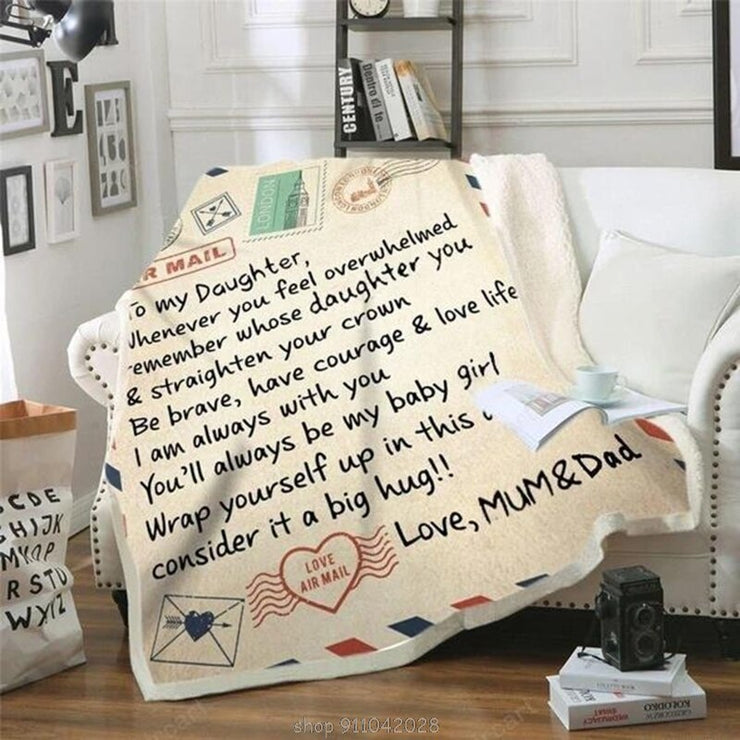 E
CENTURY
Dentro di te
LONDON
R MAIL
To my Daughter,
Whenever you feel overwhelmed
remember whose daughter you
& straighten your crown
Be brave, have courage & love life
I am always with you
You'll always be my baby girl
Wrap yourself up in this
consider it a big hug!!
Love, MUM&Dad
LOVE
AIR MAIL
CDE
GHIJK
MNOP
RSTU
WXYZ
KOŁODKO
GRZEGORZ W
WĘDRUJĄCY
ŚWIAT
shop 911042028